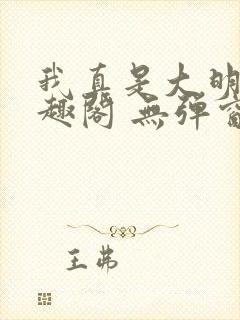 我真是大明
趣阁 無弹窗
王弗